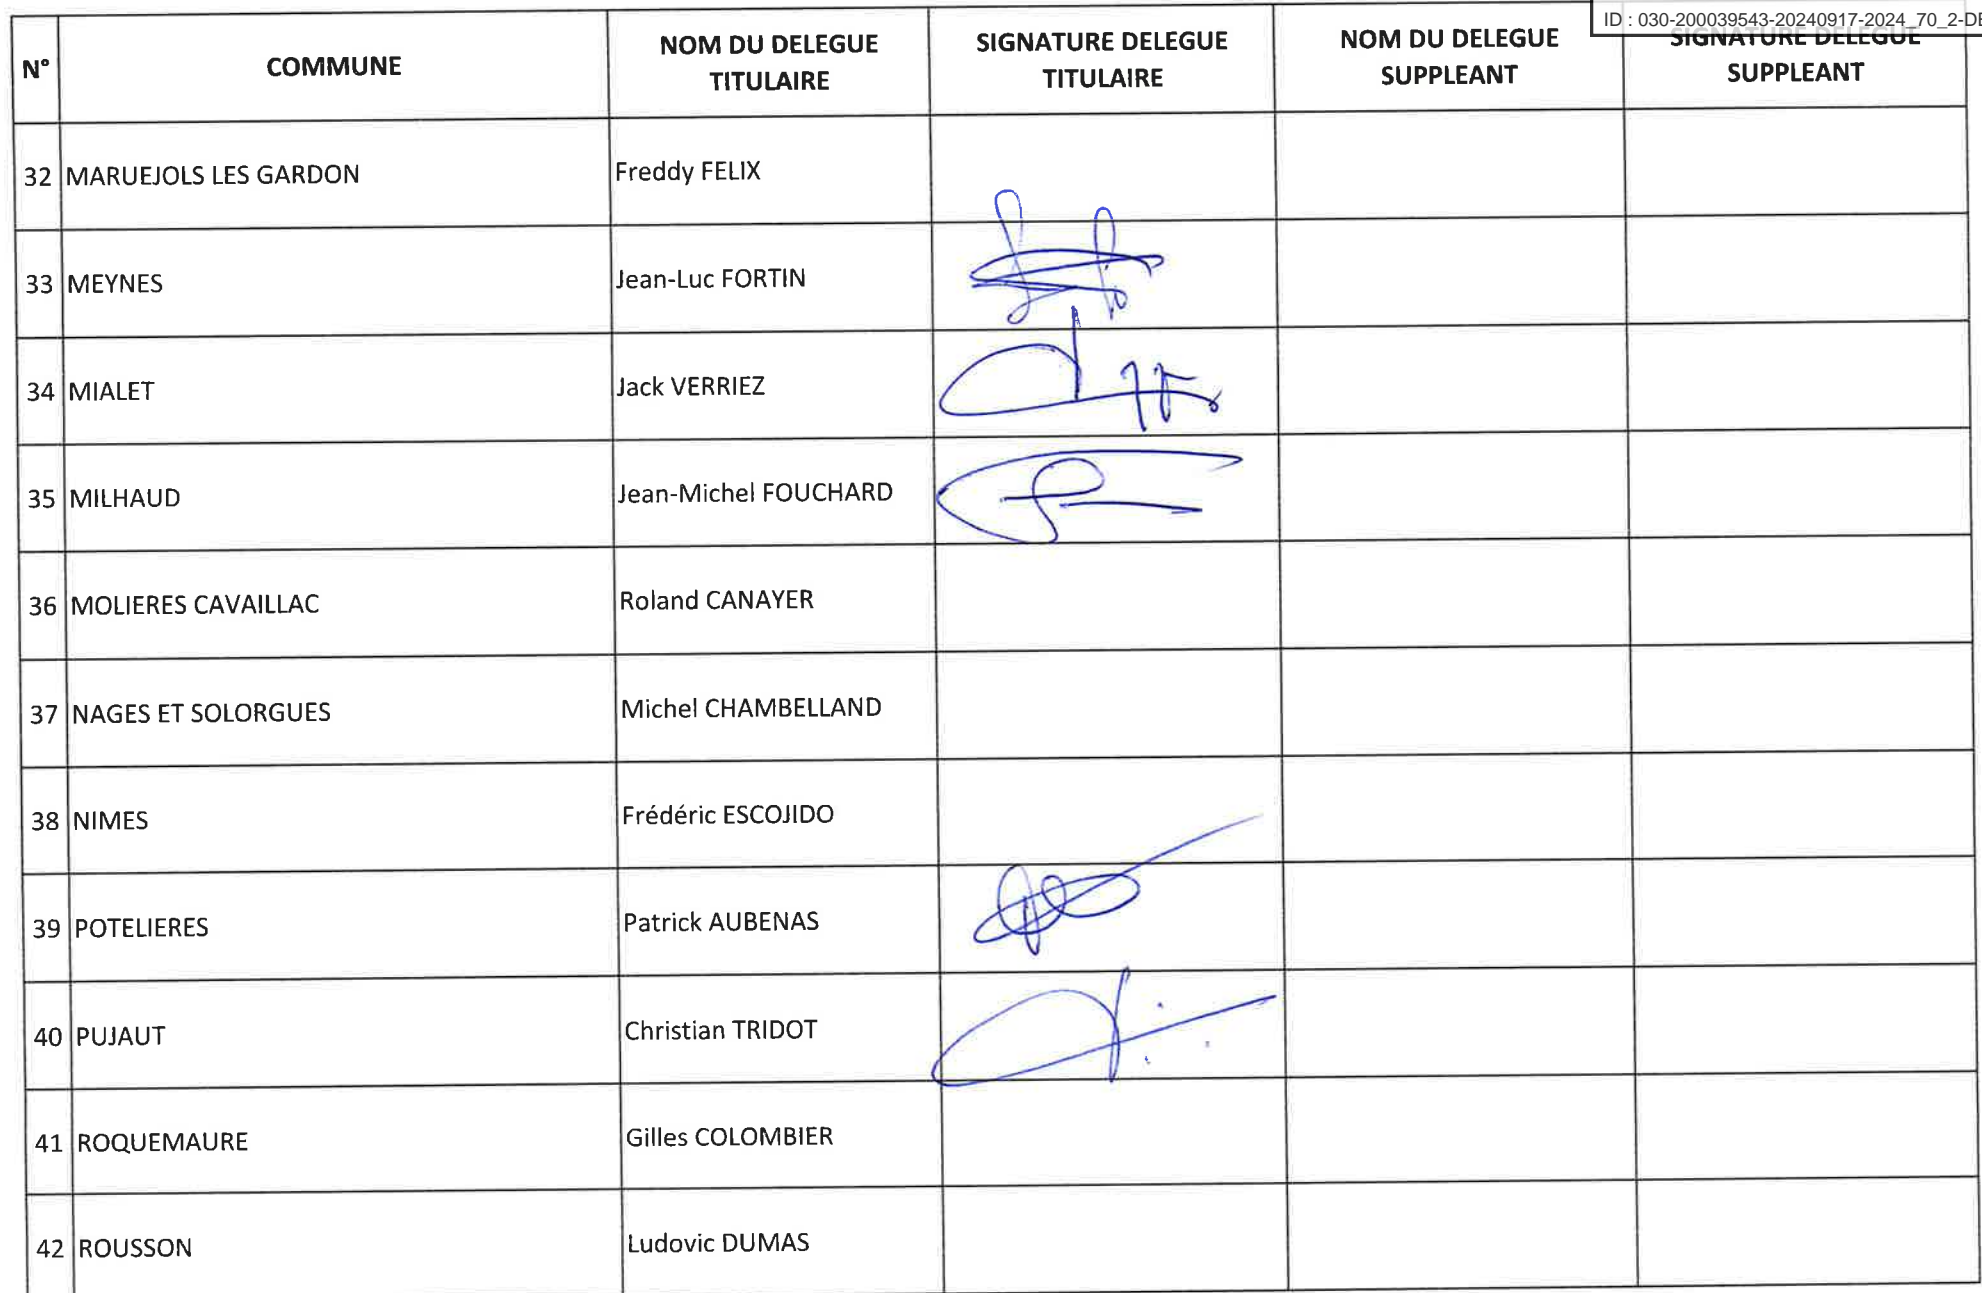 ID : 030-200039543-20240917-2024_70_2-DE
N°
COMMUNE
NOM DU DELEGUE
TITULAIRE
SIGNATURE DELEGUE
TITULAIRE
NOM DU DELEGUE
SUPPLEANT
SIGNATURE DELEGUE
SUPPLEANT
32 MARUEJOLS LES GARDON Freddy FELIX
33 MEYNES Jean-Luc FORTIN
34 MIALET Jack VERRIEZ
35 MILHAUD Jean-Michel FOUCHARD
36 MOLIERES CAVAILLAC Roland CANAYER
37 NAGES ET SOLORGUES Michel CHAMBELLAND
38 NIMES Frédéric ESCOJIDO
39 POTELIERES Patrick AUBENAS
40 PUJAUT Christian TRIDOT
41 ROQUEMAURE Gilles COLOMBIER
42 ROUSSON Ludovic DUMAS